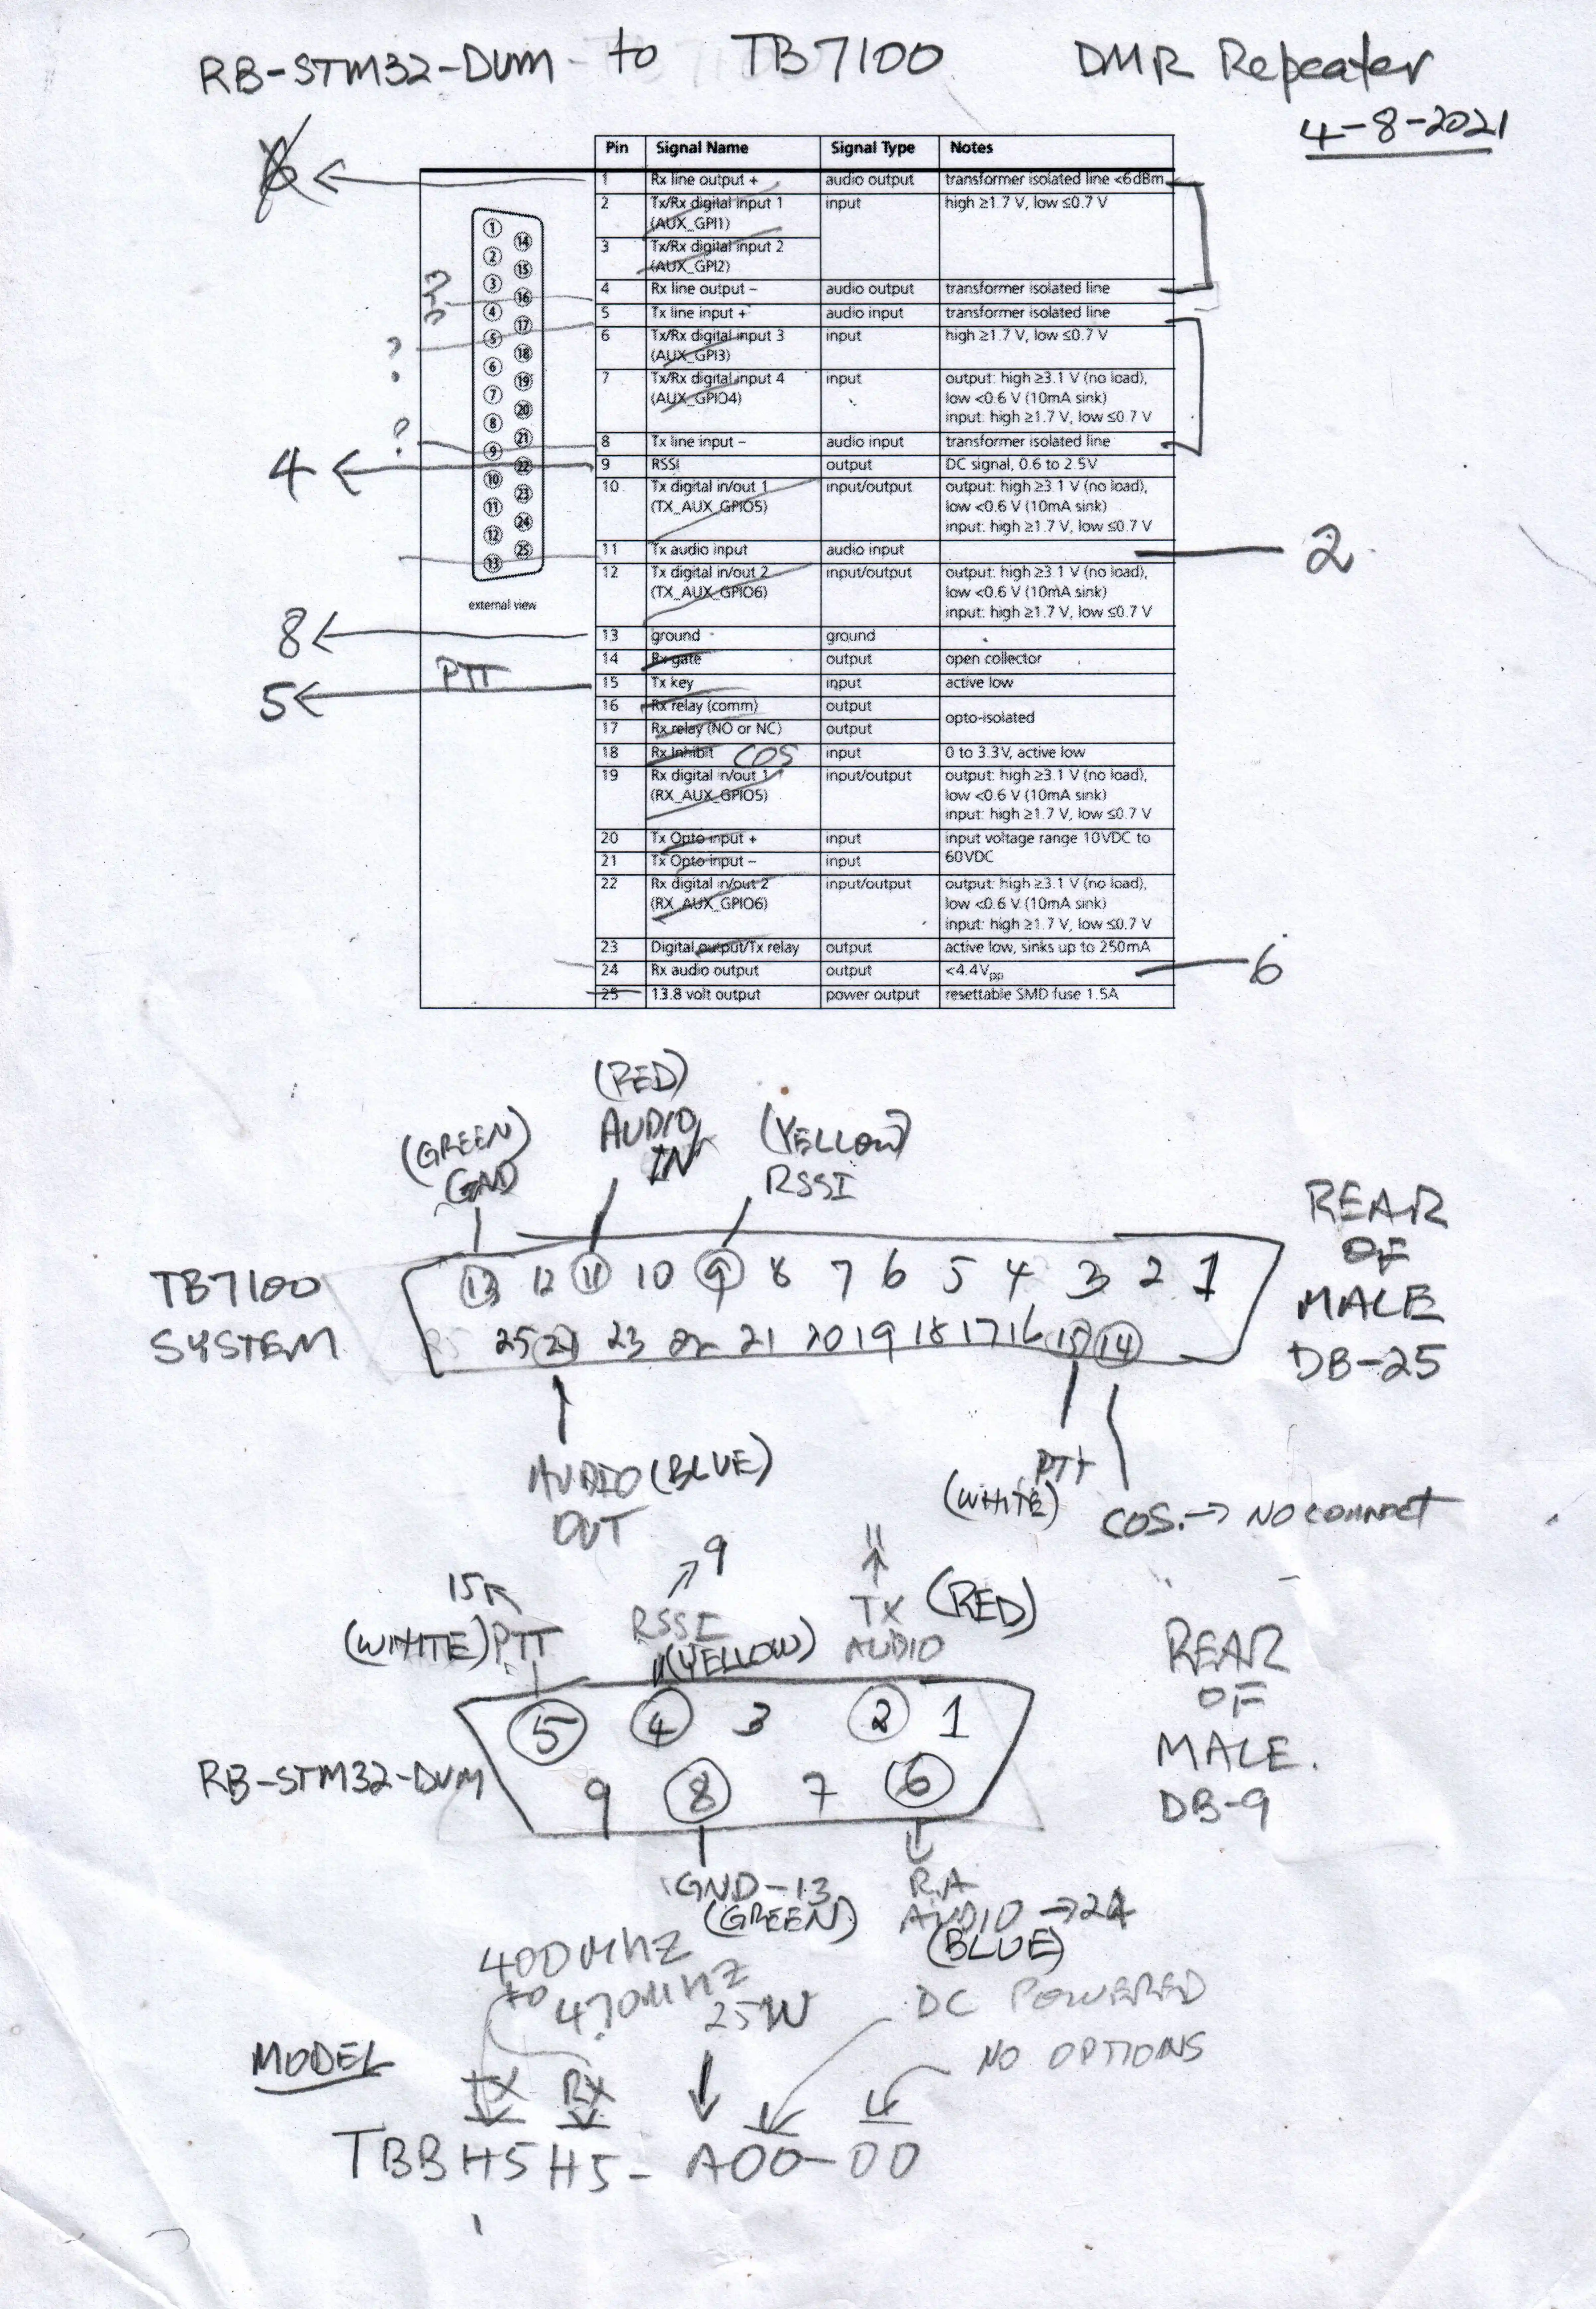 RB-STM32-DVM to TB7100 DMR Repeater
4-8-2021
Pin Signal Name Signal Type Notes
6 1 Rx line output + audio output transformer isolated line <6dBm
2 Tx/Rx digital input 1 input high ≥1.7 V, low ≤0.7 V
(AUX_GPI1)
3 Tx/Rx digital input 2
(AUX_GPI2)
4 Rx line output – audio output transformer isolated line
5 Tx line input + audio input transformer isolated line
? 6 Tx/Rx digital input 3 input high ≥1.7 V, low ≤0.7 V
(AUX_GPI3)
7 Tx/Rx digital input 4 input output: high ≥3.1 V (no load),
(AUX_GPIO4) low <0.6 V (10mA sink)
input: high ≥1.7 V, low ≤0.7 V
? 8 Tx line input – audio input transformer isolated line
4 9 RSSI output DC signal, 0.6 to 2.5V
10 Tx digital in/out 1 input/output output: high ≥3.1 V (no load),
(TX_AUX_GPIO5) low <0.6 V (10mA sink)
input: high ≥1.7 V, low ≤0.7 V
11 Tx audio input audio input 2
12 Tx digital in/out 2 input/output output: high ≥3.1 V (no load),
(TX_AUX_GPIO6) low <0.6 V (10mA sink)
input: high ≥1.7 V, low ≤0.7 V
8 13 ground ground
14 Rx gate output open collector
5 PTT 15 Tx key input active low
16 Rx relay (comm) output opto-isolated
17 Rx relay (NO or NC) output
18 Rx Inhibit COS input 0 to 3.3V, active low
19 Rx digital in/out 1 input/output output: high ≥3.1 V (no load),
(RX_AUX_GPIO5) low <0.6 V (10mA sink)
input: high ≥1.7 V, low ≤0.7 V
20 Tx Opto input + input input voltage range 10VDC to
21 Tx Opto input – input 60VDC
22 Rx digital in/out 2 input/output output: high ≥3.1 V (no load),
(RX_AUX_GPIO6) low <0.6 V (10mA sink)
input: high ≥1.7 V, low ≤0.7 V
23 Digital output/Tx relay output active low, sinks up to 250mA
24 Rx audio output output <4.4Vpp 6
25 13.8 volt output power output resettable SMD fuse 1.5A
1
14
2
15
3
16
4
17
5
18
6
19
7
20
8
21
9
22
10
23
11
24
12
25
13
external view
(GREEN)
GND
(RED)
AUDIO
IN
(YELLOW)
RSSI
TB7100
SYSTEM
13 12 11 10 9 8 7 6 5 4 3 2 1
25 24 23 22 21 20 19 18 17 16 15 14
REAR
OF
MALE
DB-25
AUDIO (BLUE)
OUT
PTT
(WHITE)
COS. → NO CONNECT
15
(WHITE) PTT
9
RSSI
(YELLOW)
11
TX (RED)
AUDIO
RB-STM32-DVM
5 4 3 2 1
9 8 7 6
REAR
OF
MALE.
DB-9
GND-13
(GREEN)
RX
AUDIO → 24
(BLUE)
400MHZ
to
470MHZ
25W
DC POWERED
NO OPTIONS
MODEL
TX RX
TBBH5H5-A00-00